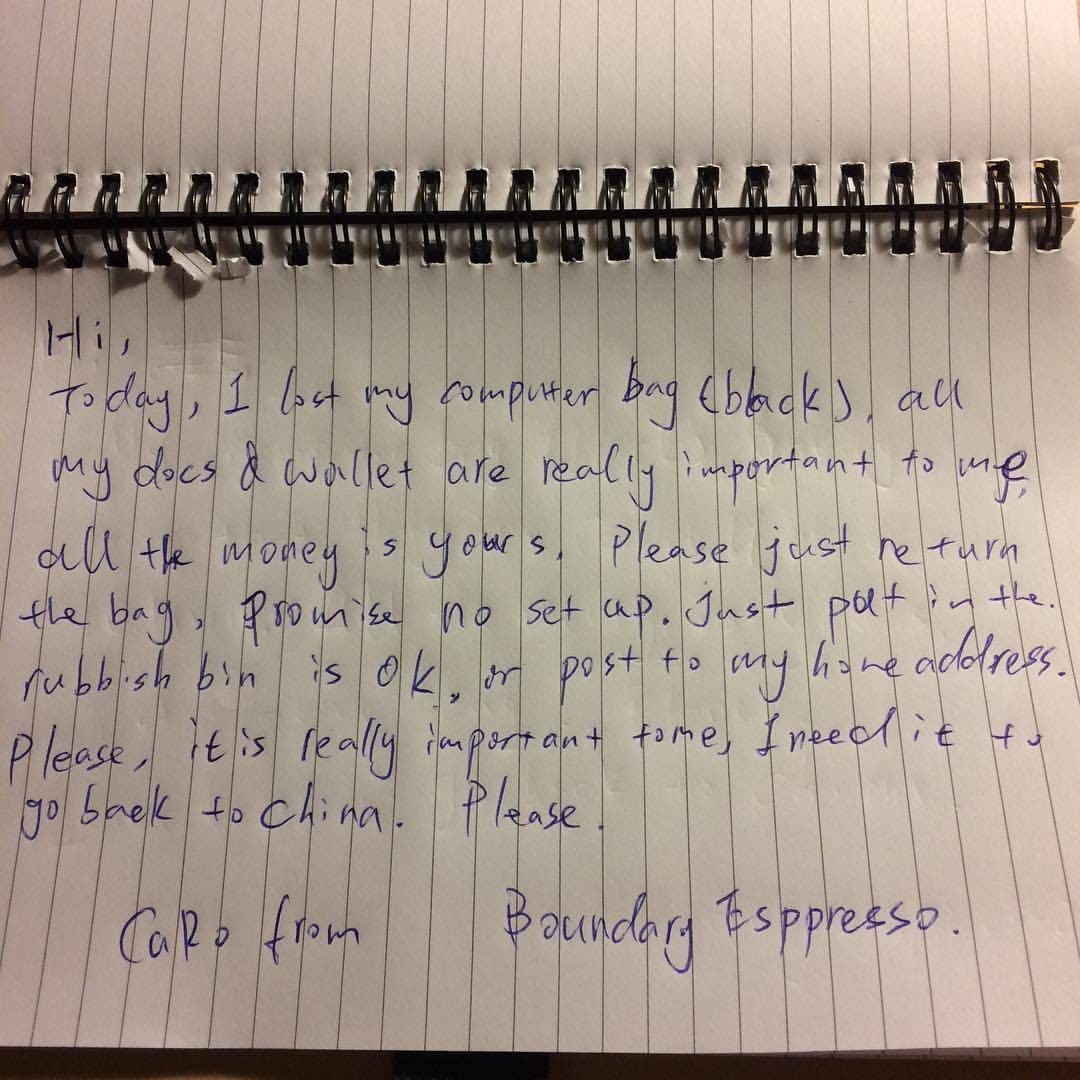 Hi,
Today, I lost my computer bag (black), all
my docs & wallet are really important to me,
all the money is yours. Please just return
the bag, Promise no set up. Just put in the.
rubbish bin is ok, or post to my home address.
Please, it is really important to me, I need it to
go back to China. Please.
CaRo from Boundary Esppresso.